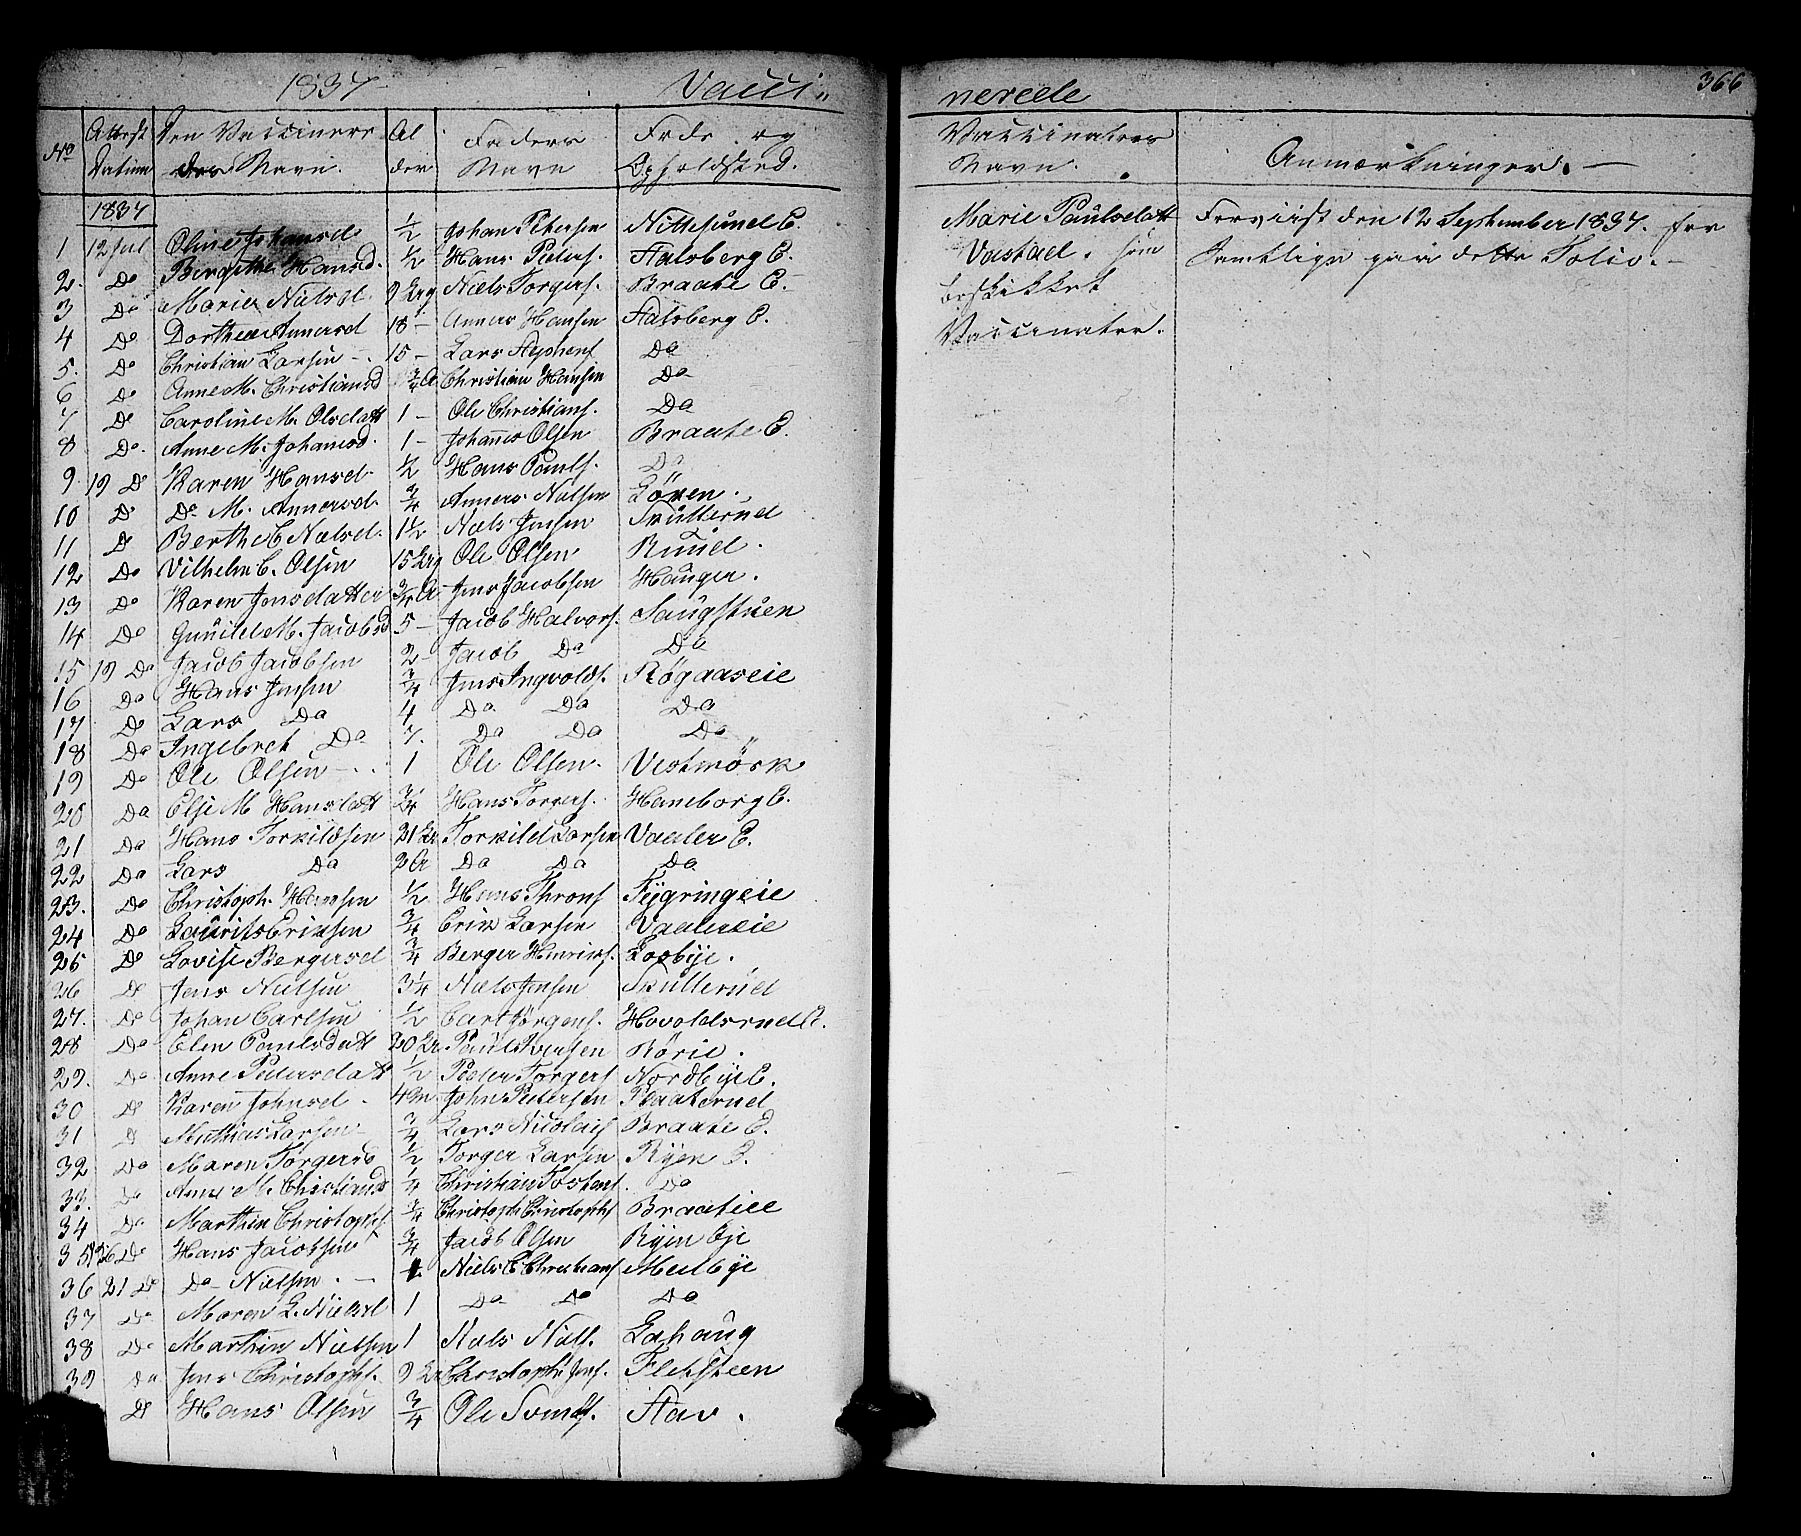 1837 Vacci-
nerede 366
No Attest Datum Den Vaccineredes Navn. Alder Faders Navn Føde og Opholdsted.
Vaccinateurs Navn. Anmærkninger. —
1837
1 12 Jul Oline Johansd ½ Johan Petersen Nittesund E.
2. Do Birgithe Hansd. ½ Hans Peters. Halsberg E.
3 Do Maria Nielsd. 9 Niels Torgers. Braate E.
4 Do Dorthea Annersd 18 — Anners Hansen Halsberg E.
5. Do Christian Larsen — 15 — Lars Stephens Do
6 Do Anne M. Christiansd Christian Hansen Do
7 Do Caroline M. Olsdatt 1 — Ole Christians. Do
8 Do. Anne M. Johansd. 1 — Johannes Olsen Braate E.
9. 19 Do Karen Hansd. ½ Hans Pauls. Do
10 Do Do M. Annersd. ¾ Anners Nilsen Lören.
11 Do Berthe C Nielsd. 1½ Niels Jensen Skullerud
12 Do Vilhelm C. Olsen 15 Ole Olsen Ruud.
13 Do Karen Jensdatter ¾ Jens Jacobsen Hauger.
14 Do Gunild M. Jacobsd 5 — Jacob Halvors. Saugstuen
15 19 Do Jacob Jacobsen 2 — Jacob Do Do
16 Do Hans Jensen ¾ Jens Ingvolds. Røgaaseie
17 Do Lars Do 4 Do Do Do
18 Do Ingebret Do 7. Do Do Do
19 Do Ole Olsen — 1 Ole Olsen. Vestmörk
20 Do Elje M Hansdatt ¾ Hans Torgers. Haneborg E.
21 Do Hans Torkildsen 21 Torkild Larsen Vaaler E.
22 Do Lars Do 2 Do Do Do
23. Do Christoph. Hansen ½ Hans Throns Fygringeie
24 Do Laurits Eriksen ¾ Erik Larsen Vaalereie
25 Do Lovise Bergersd ¾ Berger Henriks. Losbye.
26 Do Jens Nielsen 3¼ Niels Jensen Skullerud
27. Do Johan Carlsen ½ Carl Jørgens. Hovoldsrud E.
28 Do Elen Paulsdatt 20 Paul Iversen Rörie.
29. Do Anne Petersdatt ½ Peter Torgers Nordbye E.
30 Do Karen Johnsd. 4 John Petersen Plaaterud
31 Do Mathias Larsen ¾ Lars Nicolais Braate E.
32 Do Maren Torgersd ½ Torger Larsen Ryen E.
33. Do Anne M. Christiansd ¼ Christian Tostens. Do
34 Do Marthin Christophs ¾ Christoph Christophs Braateie
35 Do Hans Jacobsen ¾ Jacob Olsen Ryen Eje
36 21 Do Do Nielsen. — Niels C Christians Melbye
37 Do Maren L. Nielsd 1 Do Do Do
38 Do Marthin Nielsen 1 Niels Niels. Lahaug
39 Do Jens Christophs. 9 Christoph Jens. Fletsteen
Do Hans Olsen ¾ Ole Svends. Hav.
Marie Paulsdatt
Vastad. som
beskikket
Vaccinateur.
Forviist den 12 September 1837. for
Samtlige paa dette Folio. —